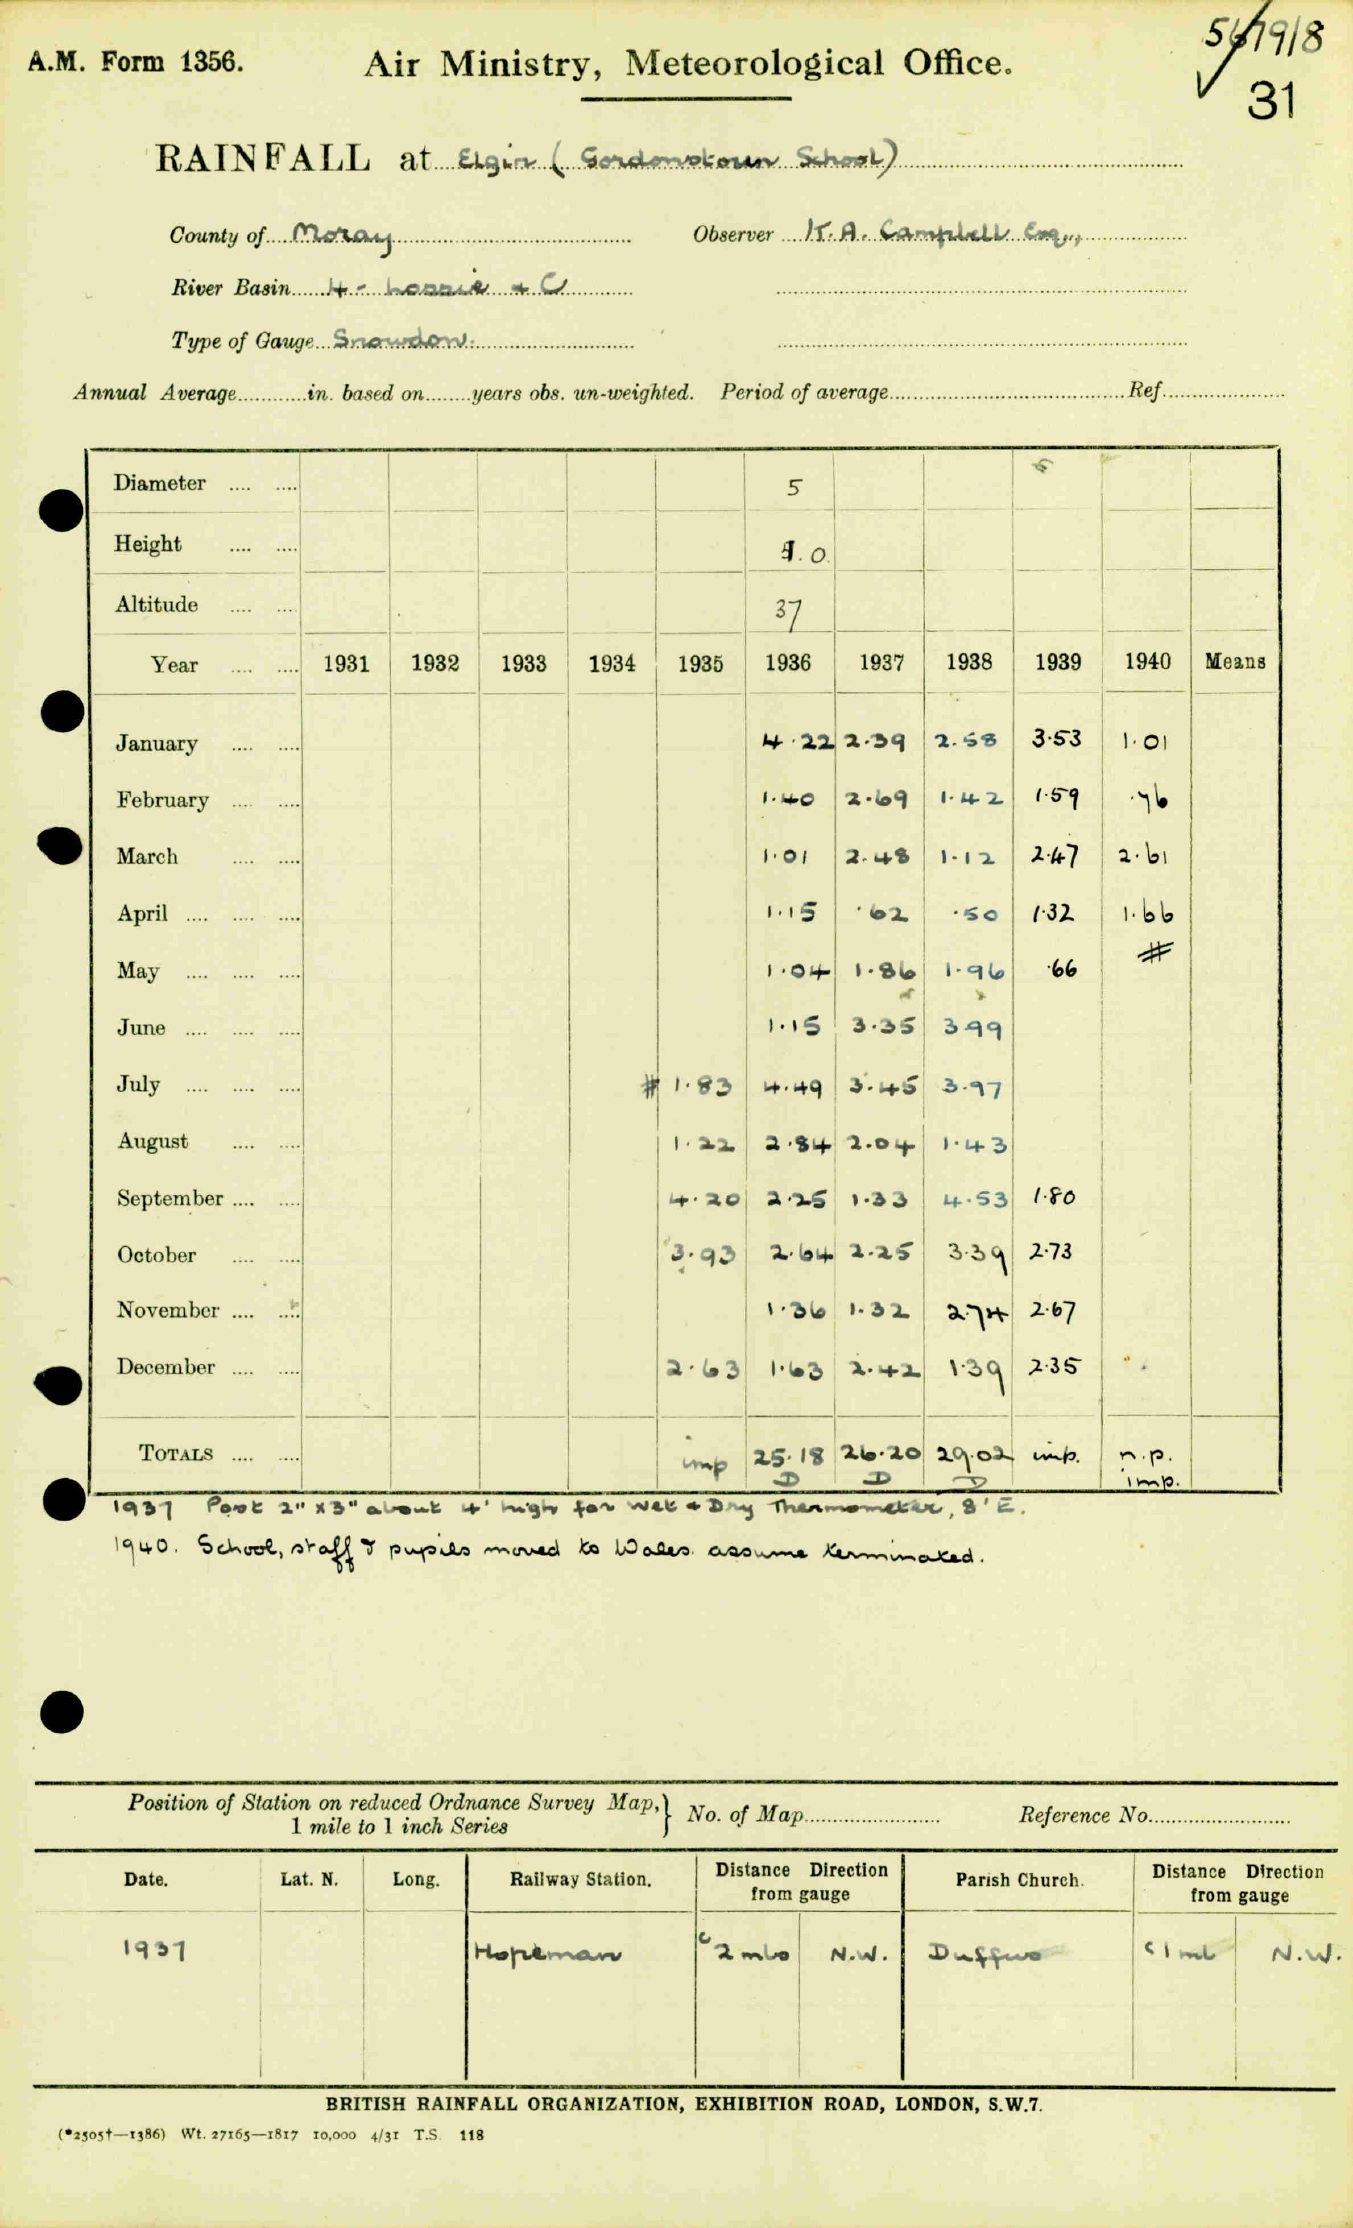 567918
A.M. Form 1356. Air Ministry, Meteorological Office.
31
RAINFALL at Elgin (Gordonstoun School)
County of Moray Observer K.A. Campbell Esq.,
River Basin 4 - Lossie + C
Type of Gauge Snowdon.
Annual Average............in. based on........years obs. un-weighted. Period of average............Ref............
Diameter .... .... 5
Height .... .... 1.0
Altitude .... .... 37
Year .... .... 1931 1932 1933 1934 1935 1936 1937 1938 1939 1940 Means
January .... .... 4.22 2.39 2.58 3.53 1.01
February .... .... 1.40 2.69 1.42 1.59 .76
March .... .... 1.01 2.48 1.12 2.47 2.61
April .... .... .... 1.15 .62 .50 1.32 1.66
May .... .... .... 1.04 1.86 1.96 .66 #
June .... .... .... 1.15 3.35 3.99
July .... .... .... # 1.83 4.49 3.45 3.97
August .... .... 1.22 2.84 2.04 1.43
September .... .... 4.20 2.25 1.33 4.53 1.80
October .... .... 3.93 2.64 2.25 3.39 2.73
November .... .... 1.36 1.32 2.74 2.67
December .... .... 2.63 1.63 2.42 1.39 2.35
TOTALS .... .... imp 25.18 26.20 29.02 imp. n.p.
D D D imp.
1937 Post 2" x 3" about 4' high for Wet & Dry Thermometer, 8' E.
1940. School, staff & pupils moved to Wales. assume terminated.
Position of Station on reduced Ordnance Survey Map,} No. of Map............ Reference No............
1 mile to 1 inch Series
Date. Lat. N. Long. Railway Station. Distance Direction from gauge Parish Church. Distance Direction from gauge
1937 Hopeman c 2 mls N.W. Duffus c 1 ml N.W.
BRITISH RAINFALL ORGANIZATION, EXHIBITION ROAD, LONDON, S.W.7.
(*2505†—1386) Wt. 27165—1817 10,000 4/31 T.S. 118